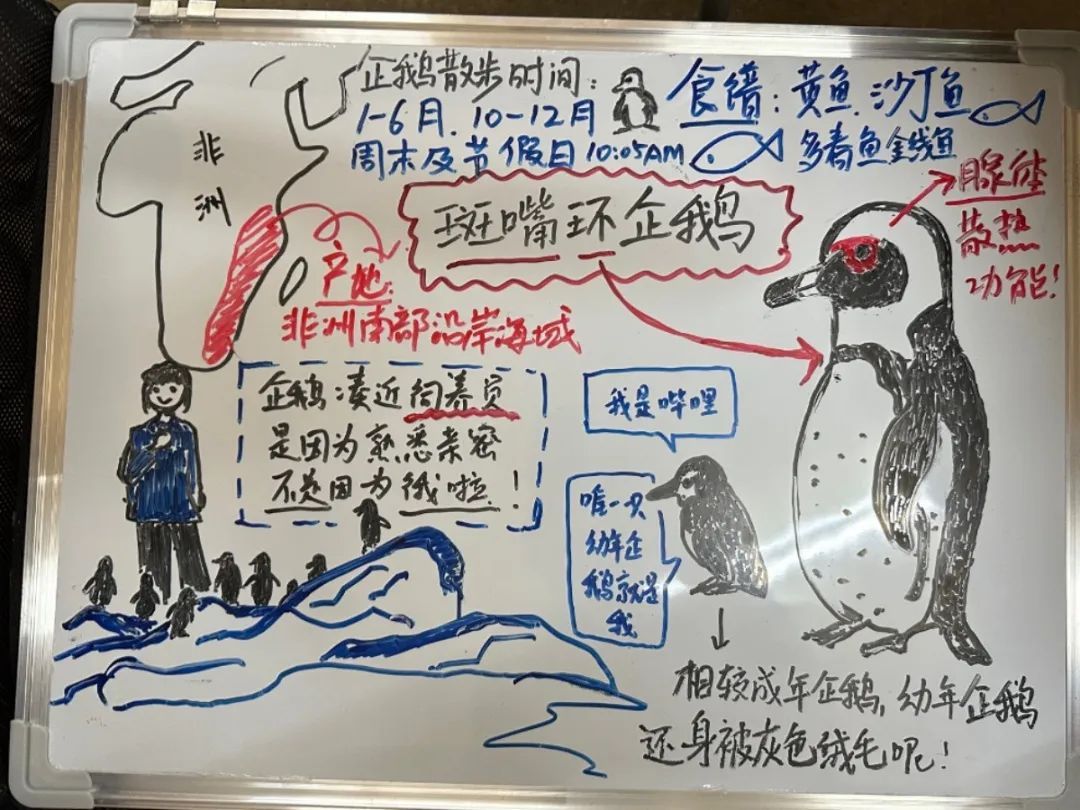 企鹅散步时间：
1-6月、10-12月
周末及节假日10:05AM
食谱：黄鱼、沙丁鱼
多春鱼金线鱼
非
洲
斑嘴环企鹅
腺体
散热
功能！
产地：
非洲南部沿岸海域
企鹅凑近饲养员
是因为熟悉亲密
不是因为饿啦！
我是哔哩
唯一只
幼年企
鹅就是
我
相较成年企鹅，幼年企鹅
还身被灰色绒毛呢！